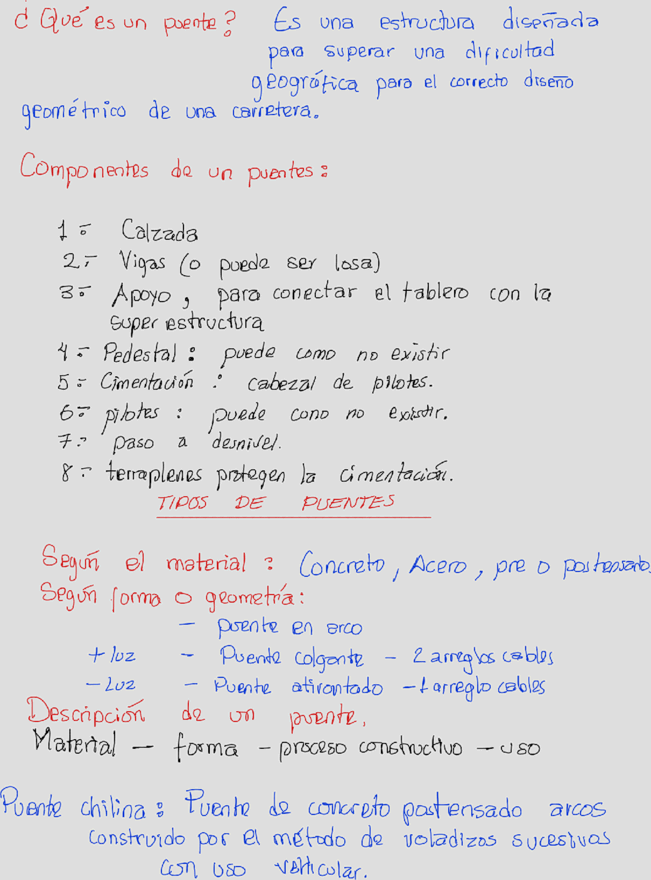 ¿Qué es un puente? Es una estructura diseñada
para superar una dificultad
geográfica para el correcto diseño
geométrico de una carretera.
Componentes de un puentes:
1.- Calzada
2.- Vigas (o puede ser losa)
3.- Apoyo, para conectar el tablero con la
super estructura
4.- Pedestal: puede como no existir
5.- Cimentación: cabezal de pilotes.
6.- pilotes: puede como no existir.
7.- paso a desnivel.
8.- terraplenes protegen la cimentación.
TIPOS DE PUENTES
Según el material: Concreto, Acero, pre o postensado
Según forma o geometría:
- puente en arco
+ luz - Puente colgante - 2 arreglos cables
- Luz - Puente atirantado - 1 arreglo cables
Descripción de un puente,
Material - forma - proceso constructivo - uso
Puente chilina: Puente de concreto postensado arcos
construido por el método de voladizos sucesivos
con uso vehicular.